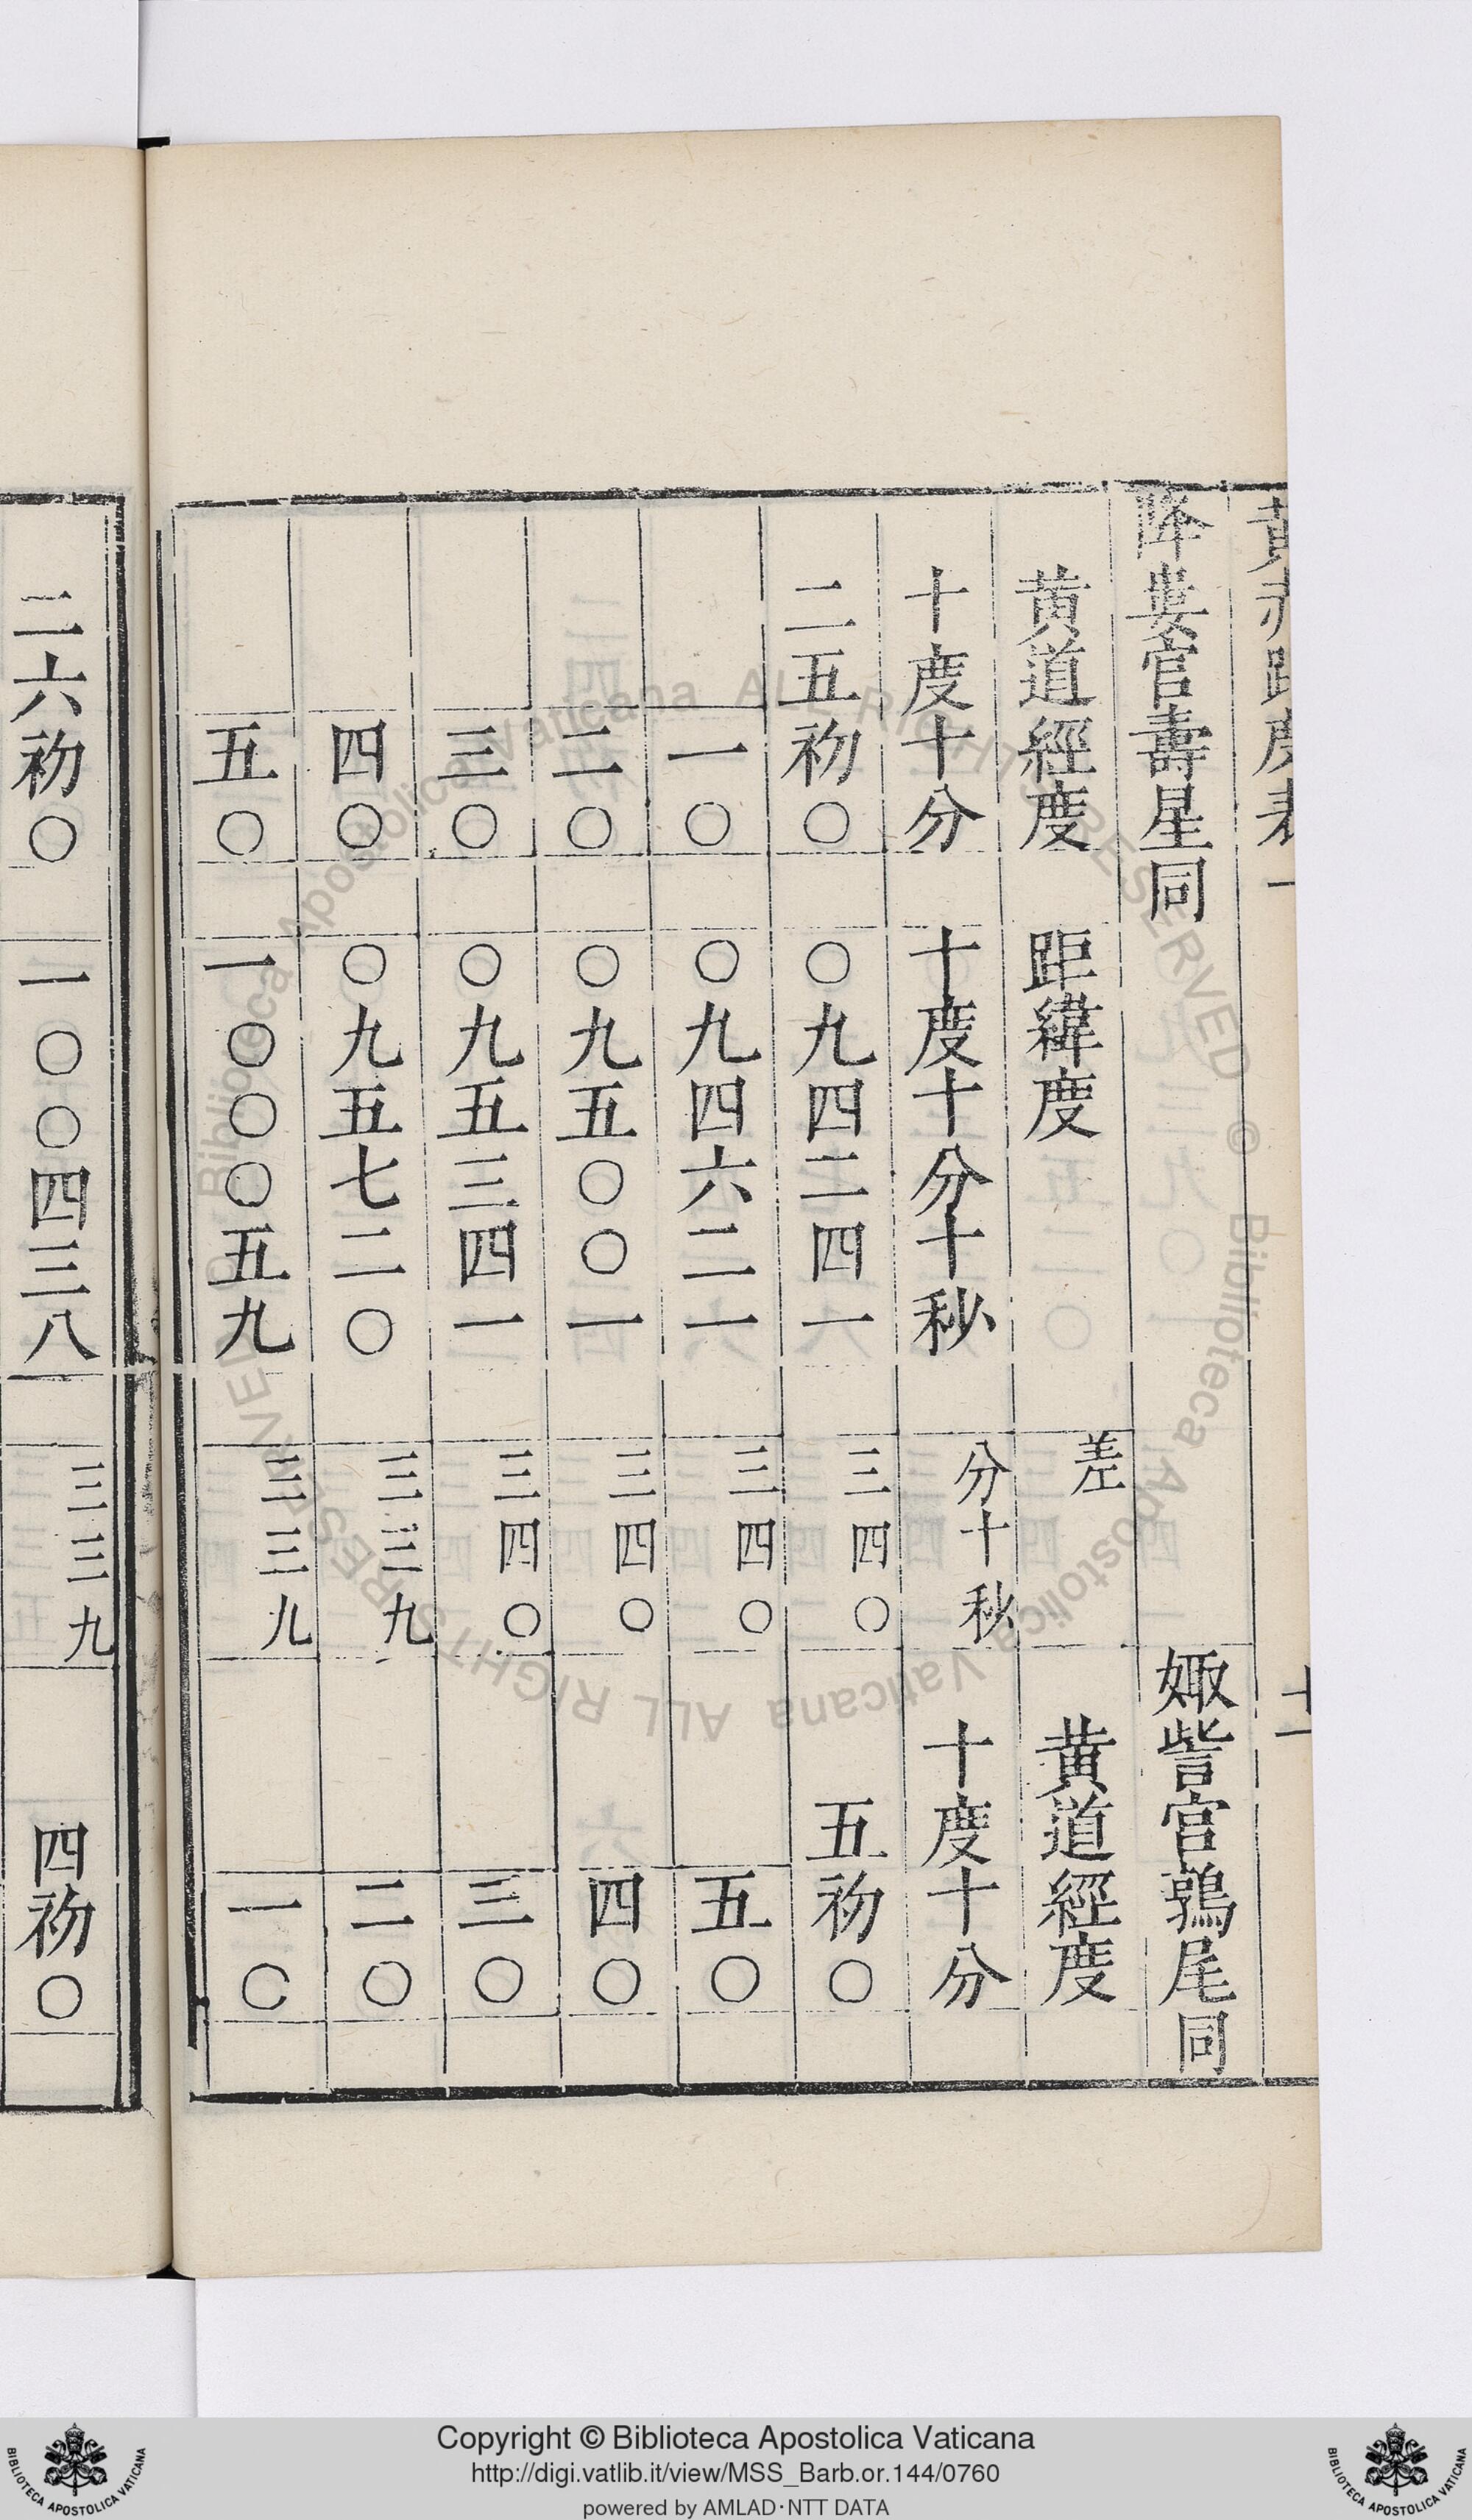 黃赤距度表一 十一
降婁宮壽星同 娵訾宮鶉尾同
黃道經度 距緯度 差 黃道經度
十度十分 十度十分十秒 分十秒 十度十分
二五初〇 〇九四二四一 三四〇 五初〇
一〇 〇九四六二一 三四〇 五〇
二〇 〇九五〇〇一 三四〇 四〇
三〇 〇九五三四一 三四〇 三〇
四〇 〇九五七二〇 三三九 二〇
五〇 一〇〇〇五九 三三九 一〇
二六初〇 一〇〇四三八 三三九 四初〇
Biblioteca Apostolica Vaticana ALL RIGHTS RESERVED © Biblioteca Apostolica Vaticana ALL RIGHTS RESERVED
Copyright © Biblioteca Apostolica Vaticana
http://digi.vatlib.it/view/MSS_Barb.or.144/0760
powered by AMLAD·NTT DATA
BIBLIOTECA APOSTOLICA VATICANA
BIBLIOTECA APOSTOLICA VATICANA